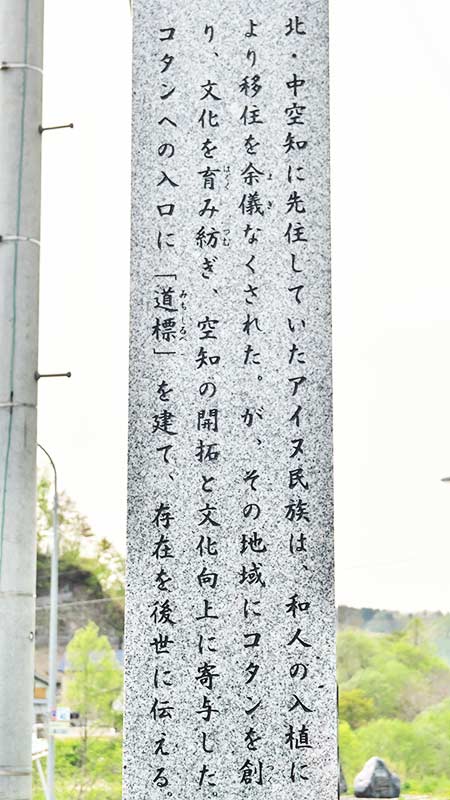 北・中空知に先住していたアイヌ民族は、和人の入植に
より移住を余儀なくされた。が、その地域にコタンを創
り、文化を育み紡ぎ、空知の開拓と文化向上に寄与した。
コタンへの入口に「道標」を建て、存在を後世に伝える。